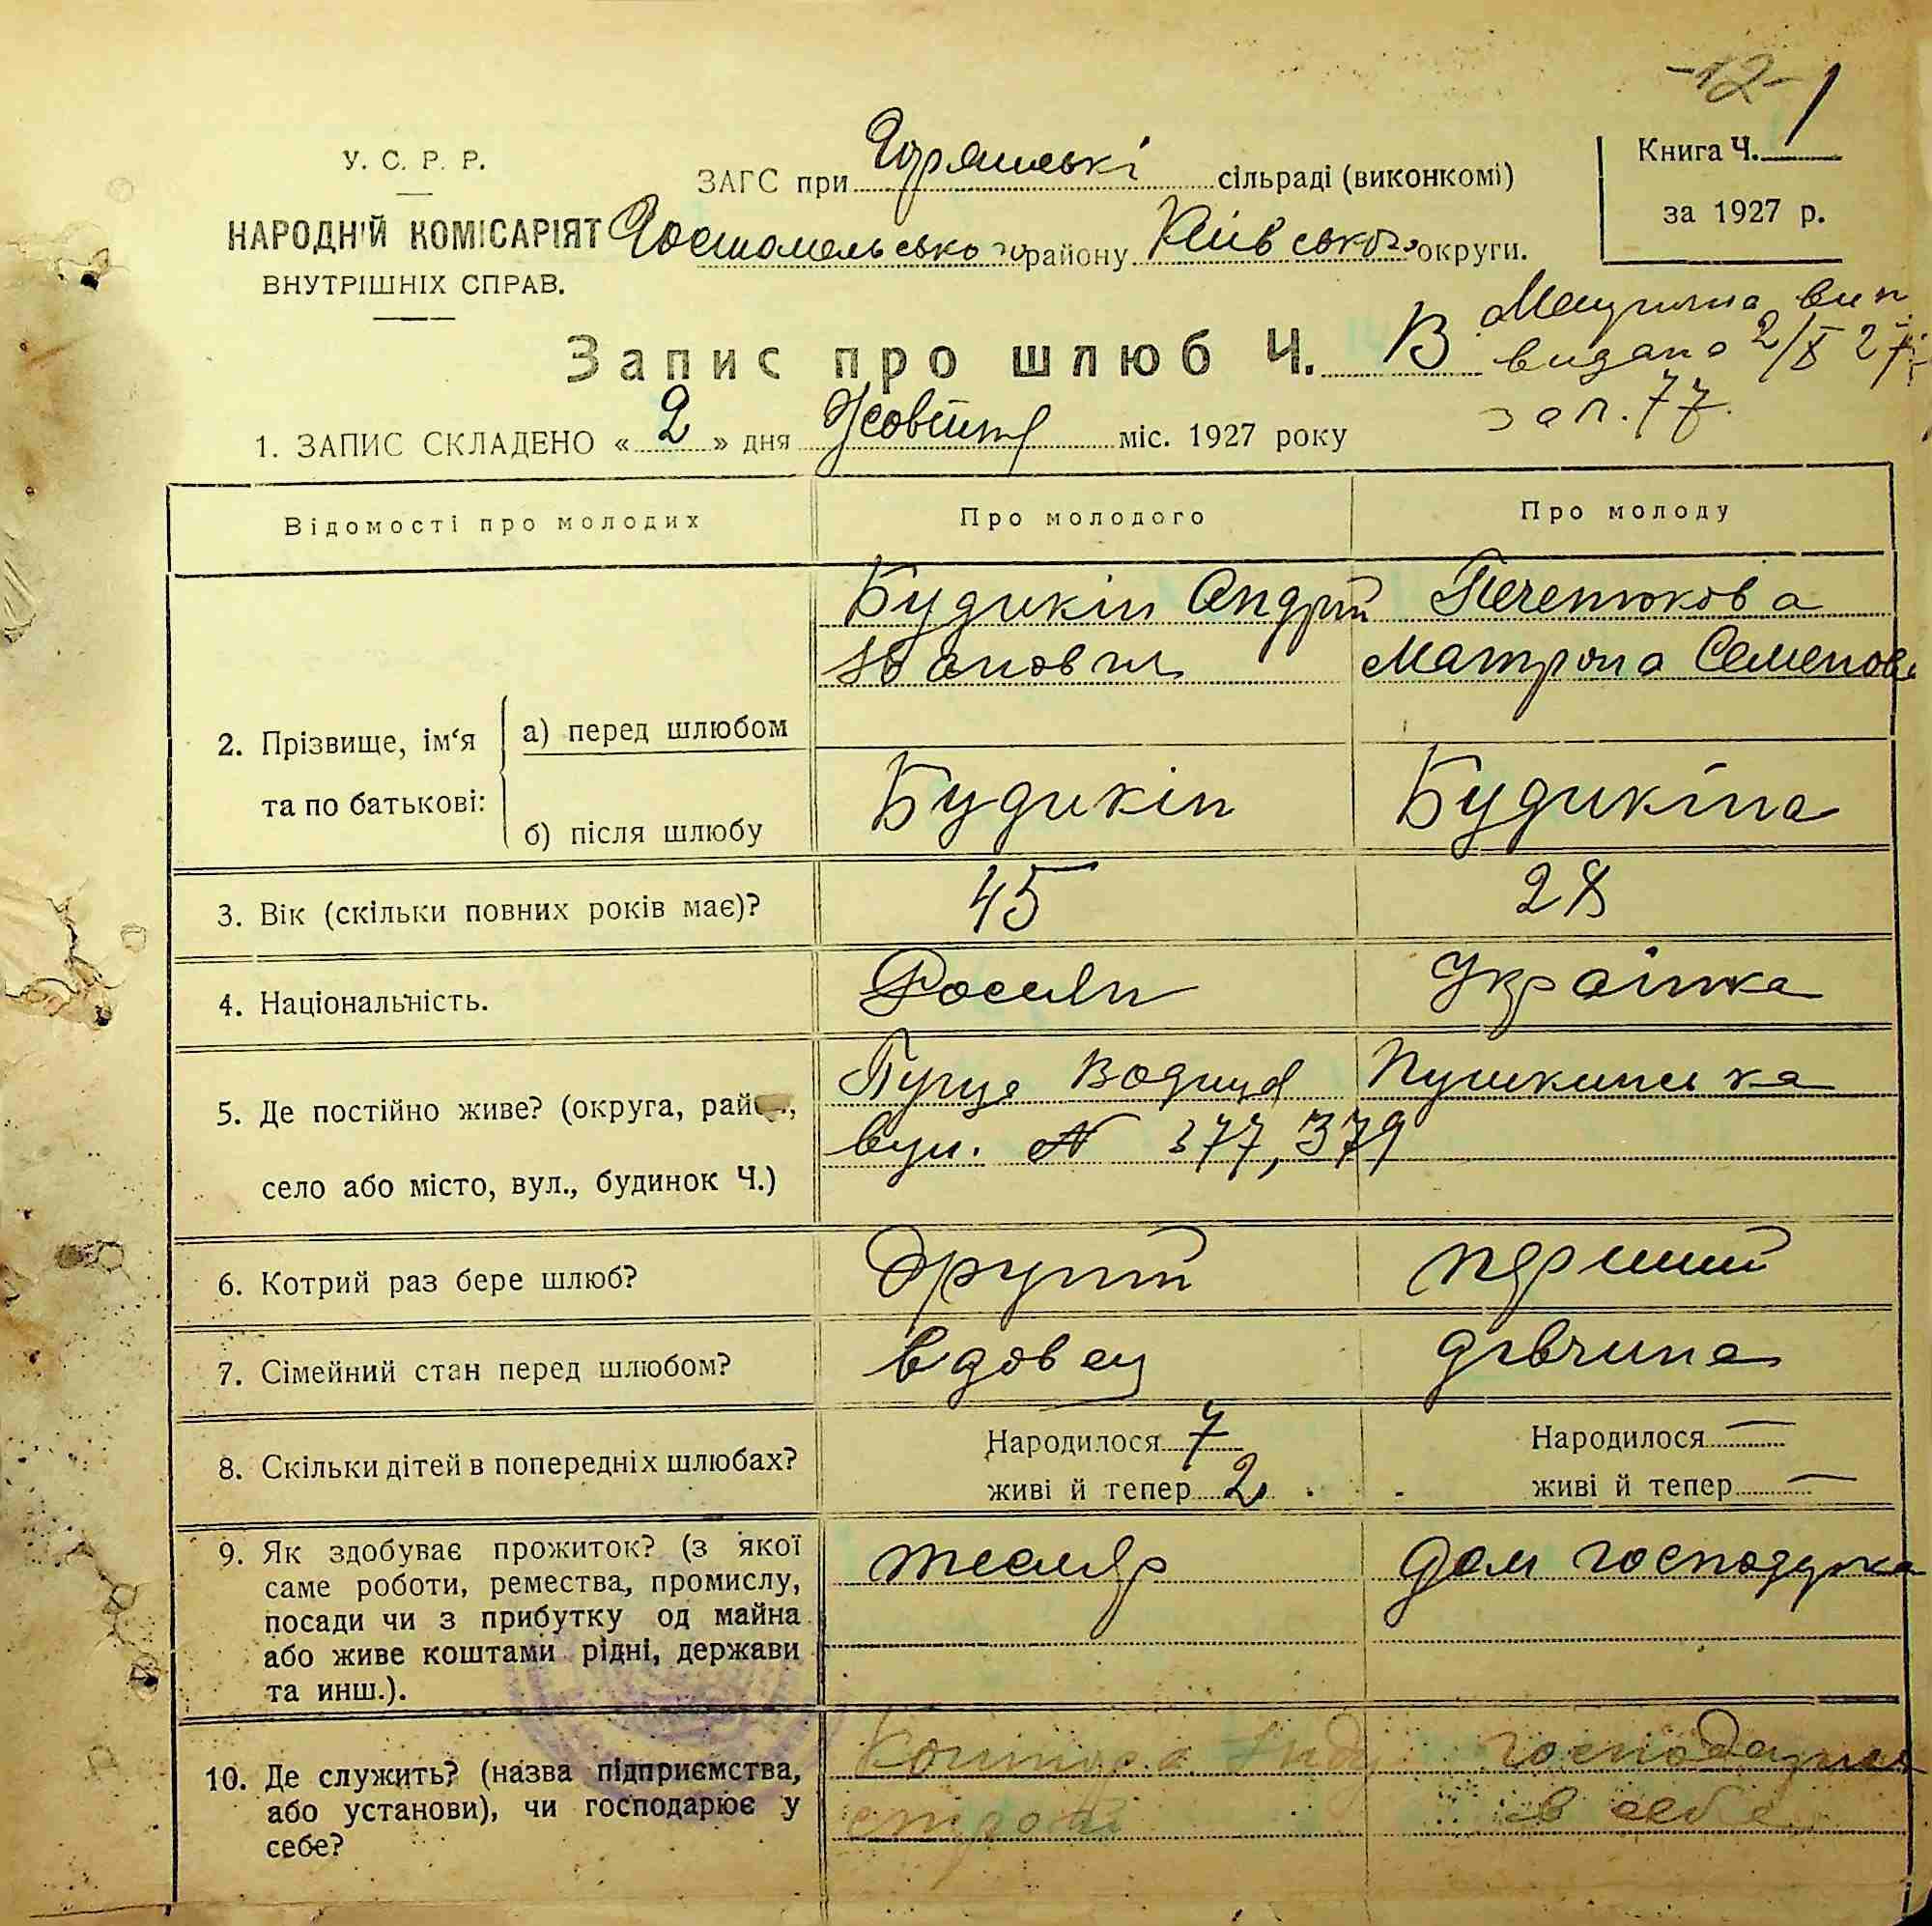 -12-
У. С. Р. Р.
НАРОДНІЙ КОМІСАРІЯТ
ВНУТРІШНІХ СПРАВ.
ЗАГС при сільраді (виконкомі)
Гостомельського району Київського округи.
Книга Ч. 1
за 1927 р.
Запис про шлюб Ч. 13
видано 2/X 27
зап. 77.
1. ЗАПИС СКЛАДЕНО « 2 » дня Жовтня міс. 1927 року
Відомості про молодих
Про молодого
Про молоду
2. Прізвище, ім‘я та по батькові:
а) перед шлюбом
Будикін Андрій
Іванович
Печенюкова
Матрона Семенов
б) після шлюбу
Будикін
Будикіна
3. Вік (скільки повних років має)?
45
28
4. Національність.
Росіян
Українка
5. Де постійно живе? (округа, район,
село або місто, вул., будинок Ч.)
Пуща Водиця Пушкинська
вул. № 377, 379
6. Котрий раз бере шлюб?
Другий
перший
7. Сімейний стан перед шлюбом?
вдовец
дівчина
8. Скільки дітей в попередніх шлюбах?
Народилося 7
живі й тепер 2
Народилося —
живі й тепер —
9. Як здобуває прожиток? (з якої
саме роботи, ремества, промислу,
посади чи з прибутку од майна
або живе коштами рідні, держави
та инш.).
тесляр
дом господарка
10. Де служить? (назва підприємства,
або установи), чи господарює у
себе?
Контора Інду
строй
в себе